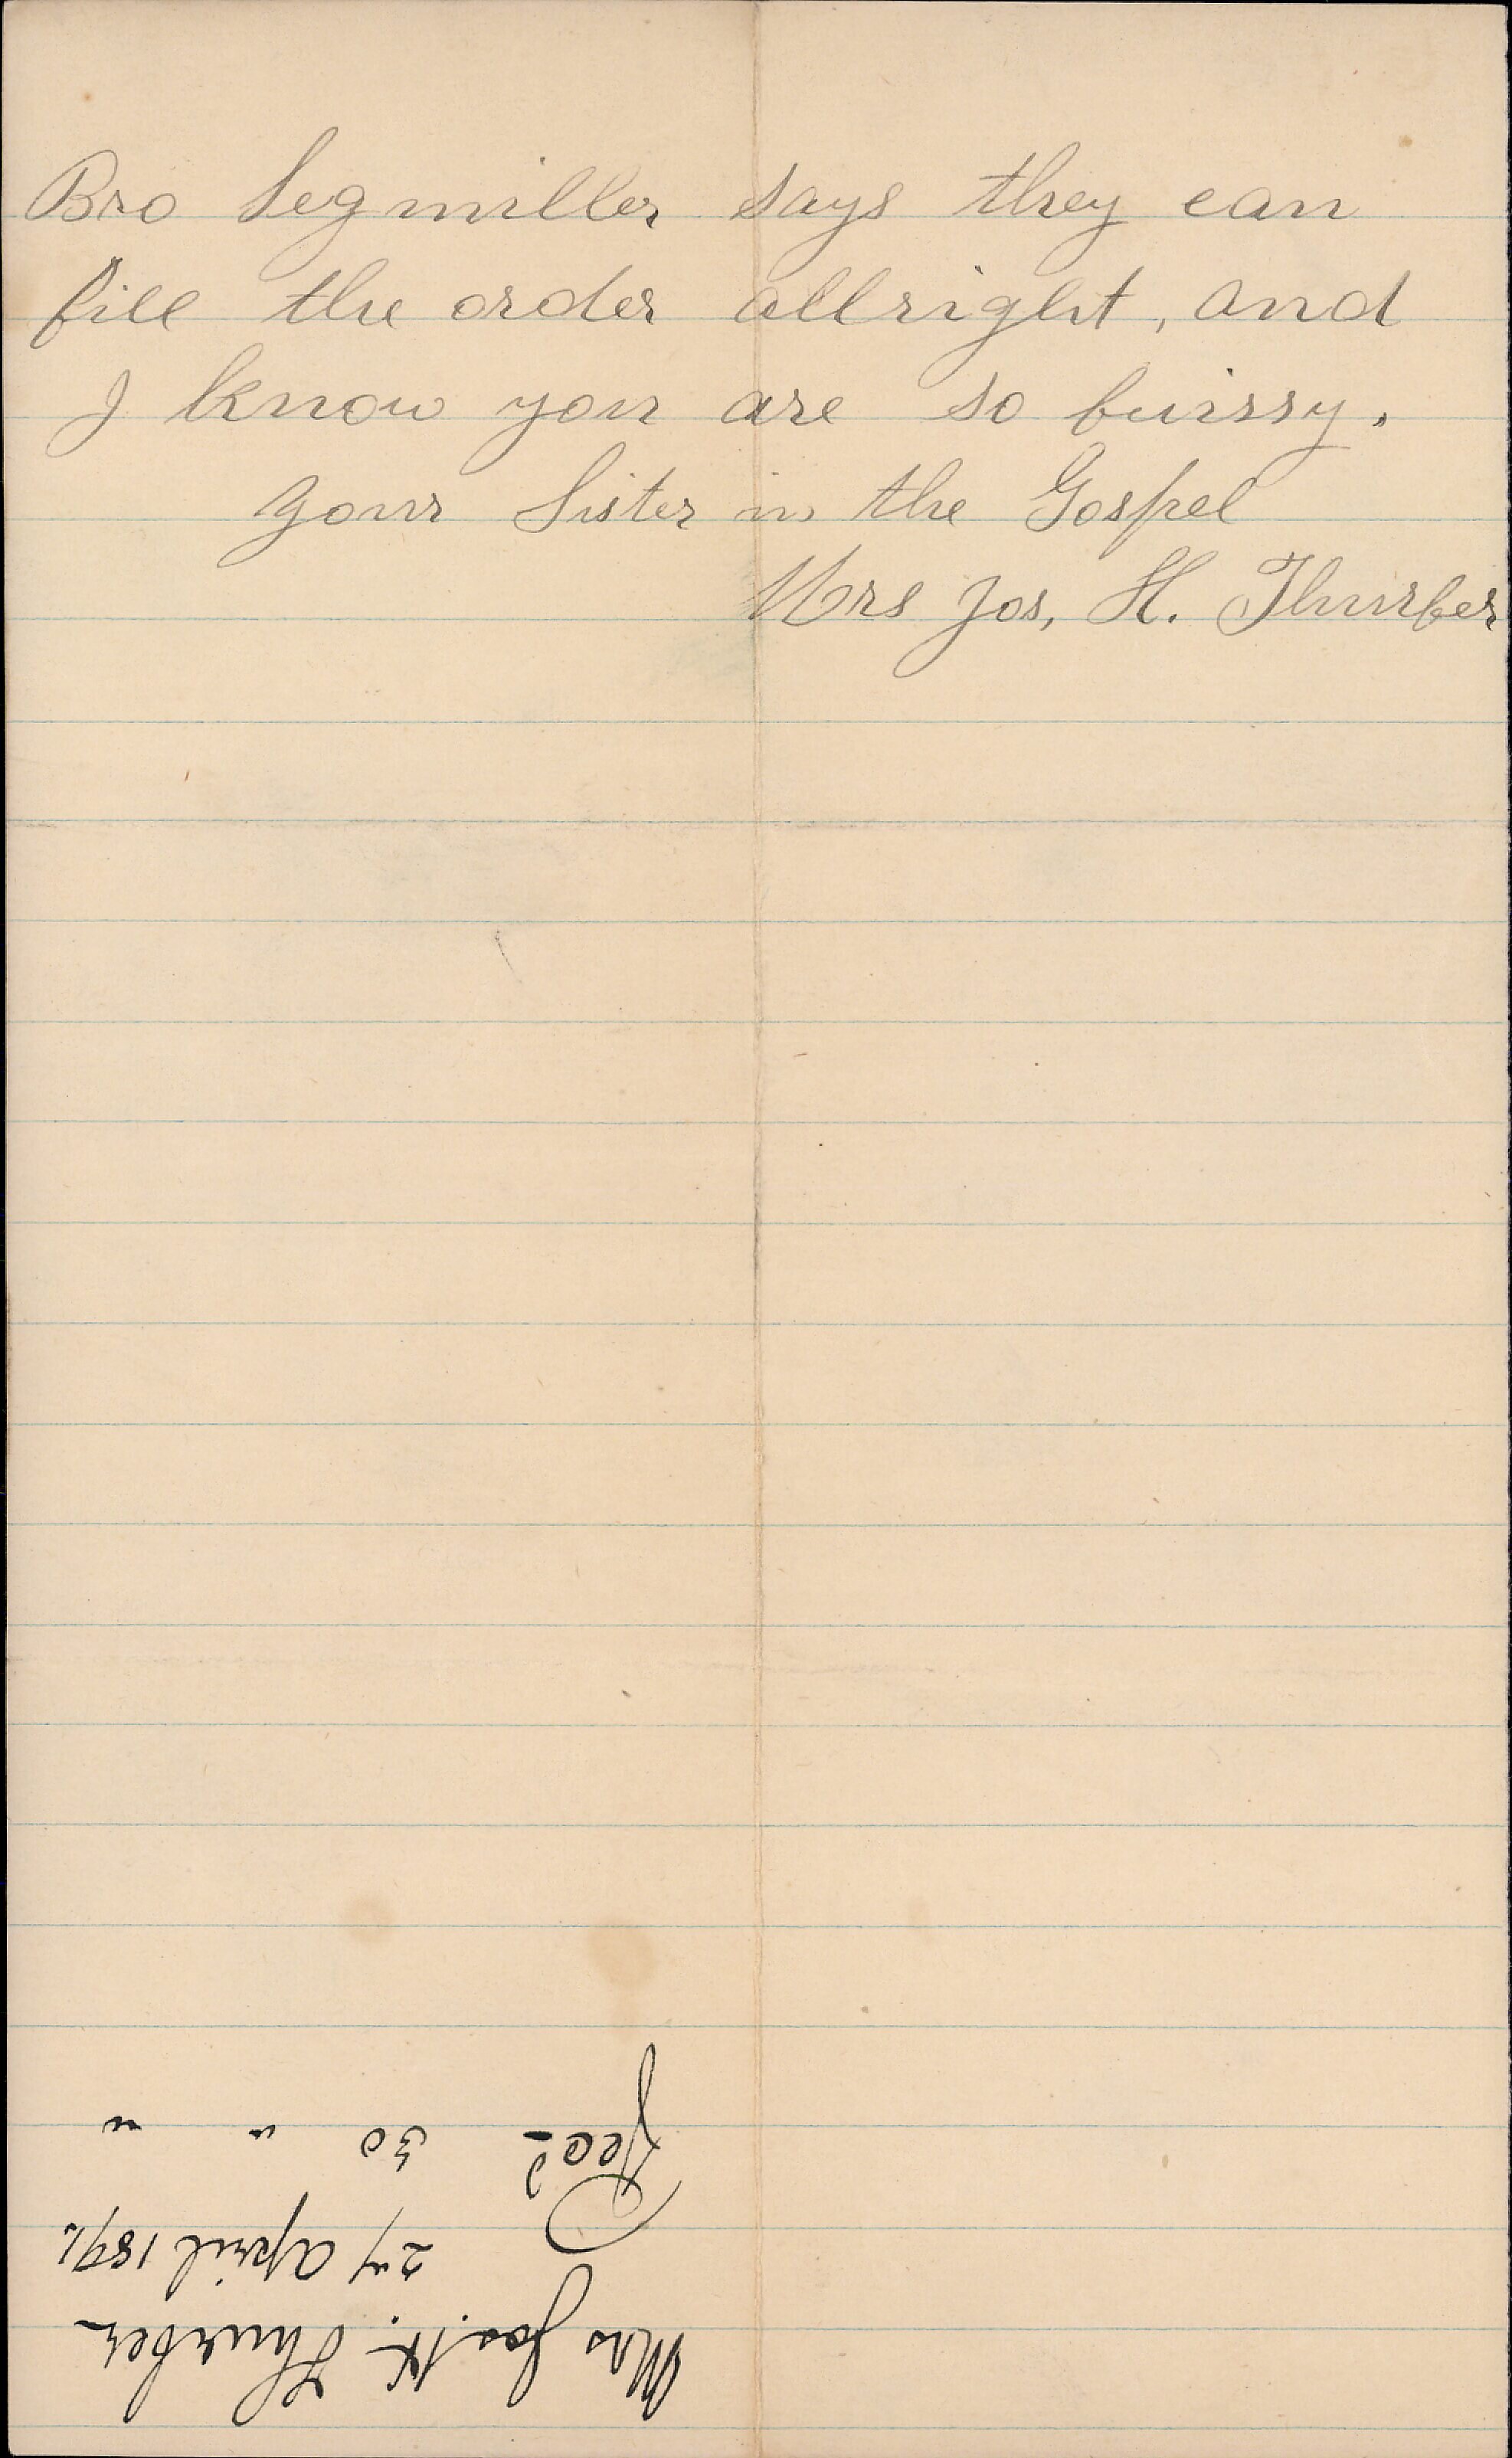 Bro Segmiller says they can
fill the order allright, and
I know you are so buissy.
Your Sister in the Gospel
Mrs Jos, H. Thurber
Mrs Jos. H. Thurber
27 April 1891.
Recd 30 " "